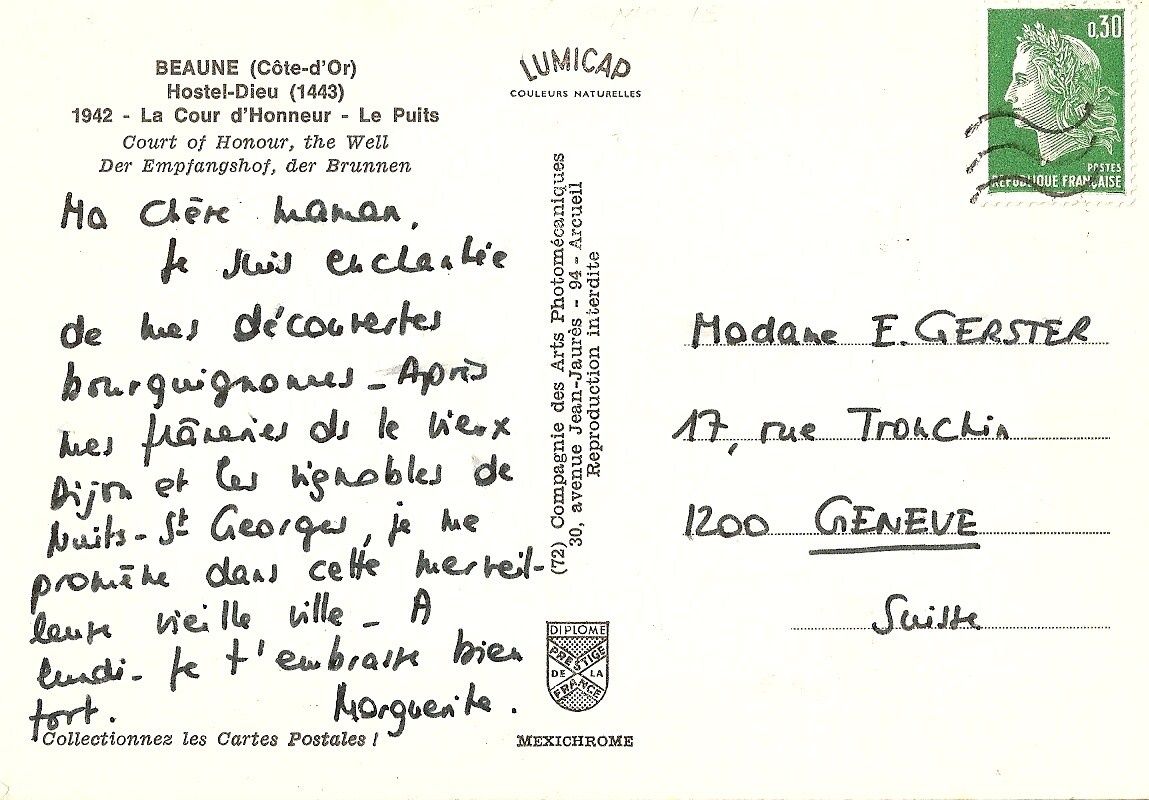 BEAUNE (Côte-d'Or)
Hostel-Dieu (1443)
1942 - La Cour d'Honneur - Le Puits
Court of Honour, the Well
Der Empfangshof, der Brunnen
Ma Chère Maman,
Je suis enchantée
de mes découvertes
bourguignonnes - Après
mes flâneries ds le vieux
Dijon et les vignobles de
Nuits-St Georges, je me
promène dans cette merveil-
leuse vieille ville - A
lundi - Je t'embrasse bien
fort. Marguerite.
Collectionnez les Cartes Postales !
LUMICAP
COULEURS NATURELLES
(72) Compagnie des Arts Photomécaniques
30, avenue Jean-Jaurès - 94 - Arcueil
Reproduction interdite
DIPLOME
PRESTIGE
DE LA
FRANCE
MEXICHROME
0,30
POSTES
REPUBLIQUE FRANÇAISE
Madame E. GERSTER
17, rue Tronchin
1200 GENEVE
Suisse